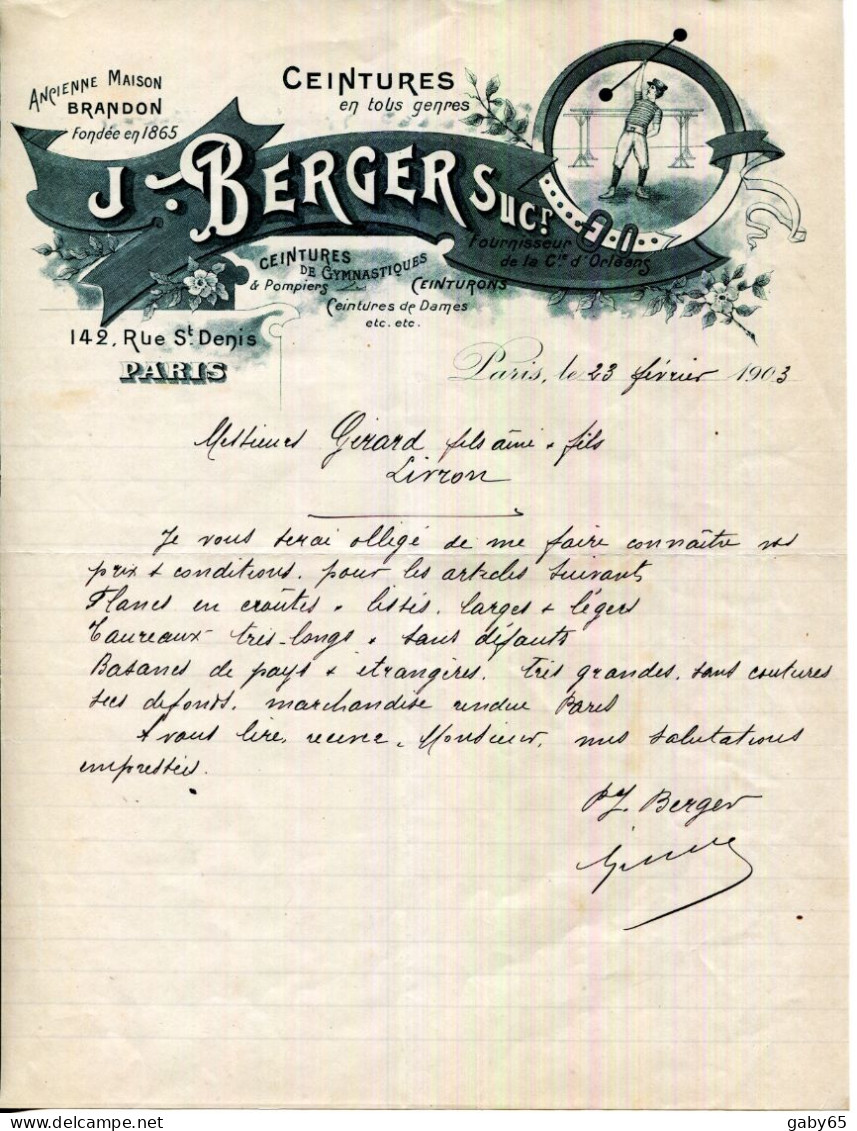 Ancienne Maison
BRANDON
Fondée en 1865
CEINTURES
en tous genres
J. BERGER Sucr.
Fournisseur
de la Cie d'Orléans
CEINTURES
DE GYMNASTIQUES
& Pompiers
CEINTURONS
Ceintures de Dames
etc. etc.
142, Rue St Denis
PARIS
Paris, le 23 février 1903
Messieurs Gérard fils ainé & fils
Livron
Je vous serai obligé de me faire connaître vos
prix & conditions. pour les articles suivants
Flancs en croûtes & lissés. larges & légers
Taureaux très-longs & sans défauts
Basanes de pays & étrangères. très grandes. sans coutures
secs de fonds. marchandise rendue Paris
A vous lire, recevez, Monsieur, mes salutations
empressées.
PJ. Berger
gaby65